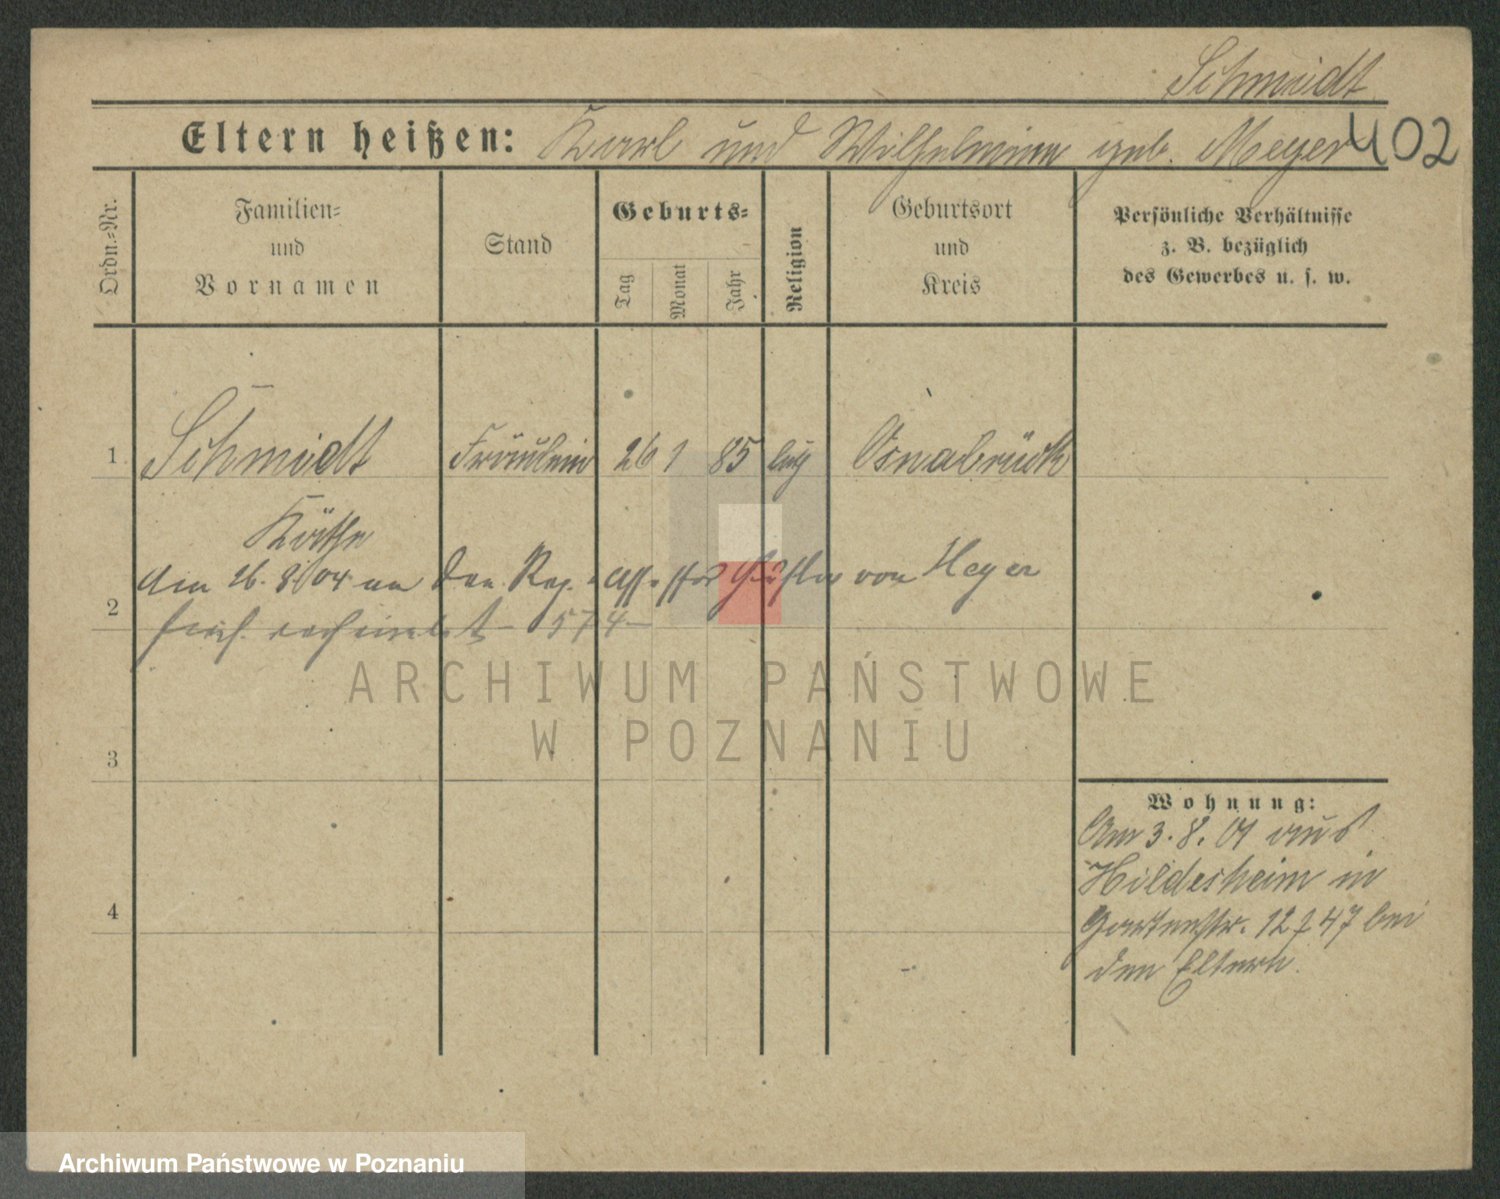 Schmidt
Eltern heißen: Karl und Wilhelmine geb. Meyer 402
Ordn.-Nr.
Familien-
und
Vornamen
Stand
Geburts-
Tag
Monat
Jahr
Religion
Geburtsort
und
Kreis
Persönliche Verhältnisse
z. B. bezüglich
des Gewerbes u. s. w.
1 Schmidt Fräulein 26 1 85 Osnabrück
Käthe
am 26. 8. 04 an den Reg. Assessor von Heyer
2 574
ARCHIWUM PAŃSTWOWE
W POZNANIU
3
Wohnung:
Am 3. 8. 01 aus
Hildesheim in
4 Gartenstr. 12 47 bei
den Eltern.
Archiwum Państwowe w Poznaniu